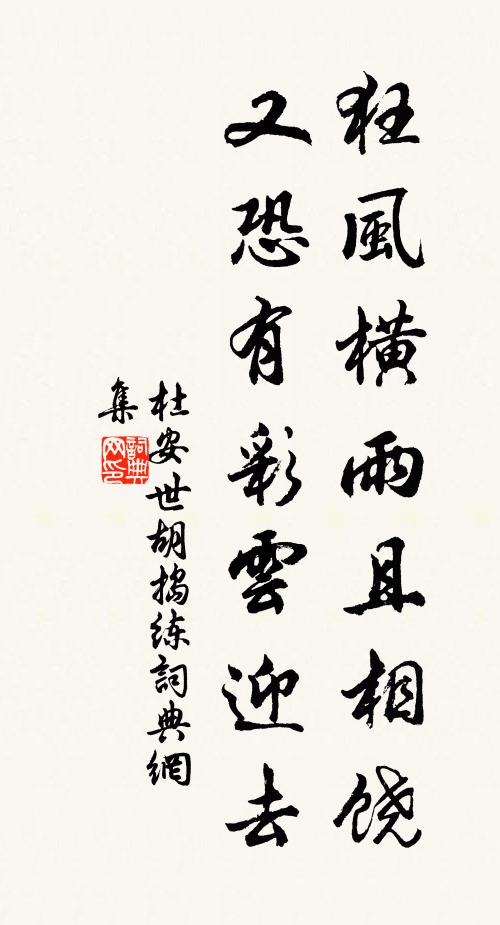 狂風橫雨且相饶
又恐有彩雲迎去
杜安世胡捣练詞典網
集
詞典网印